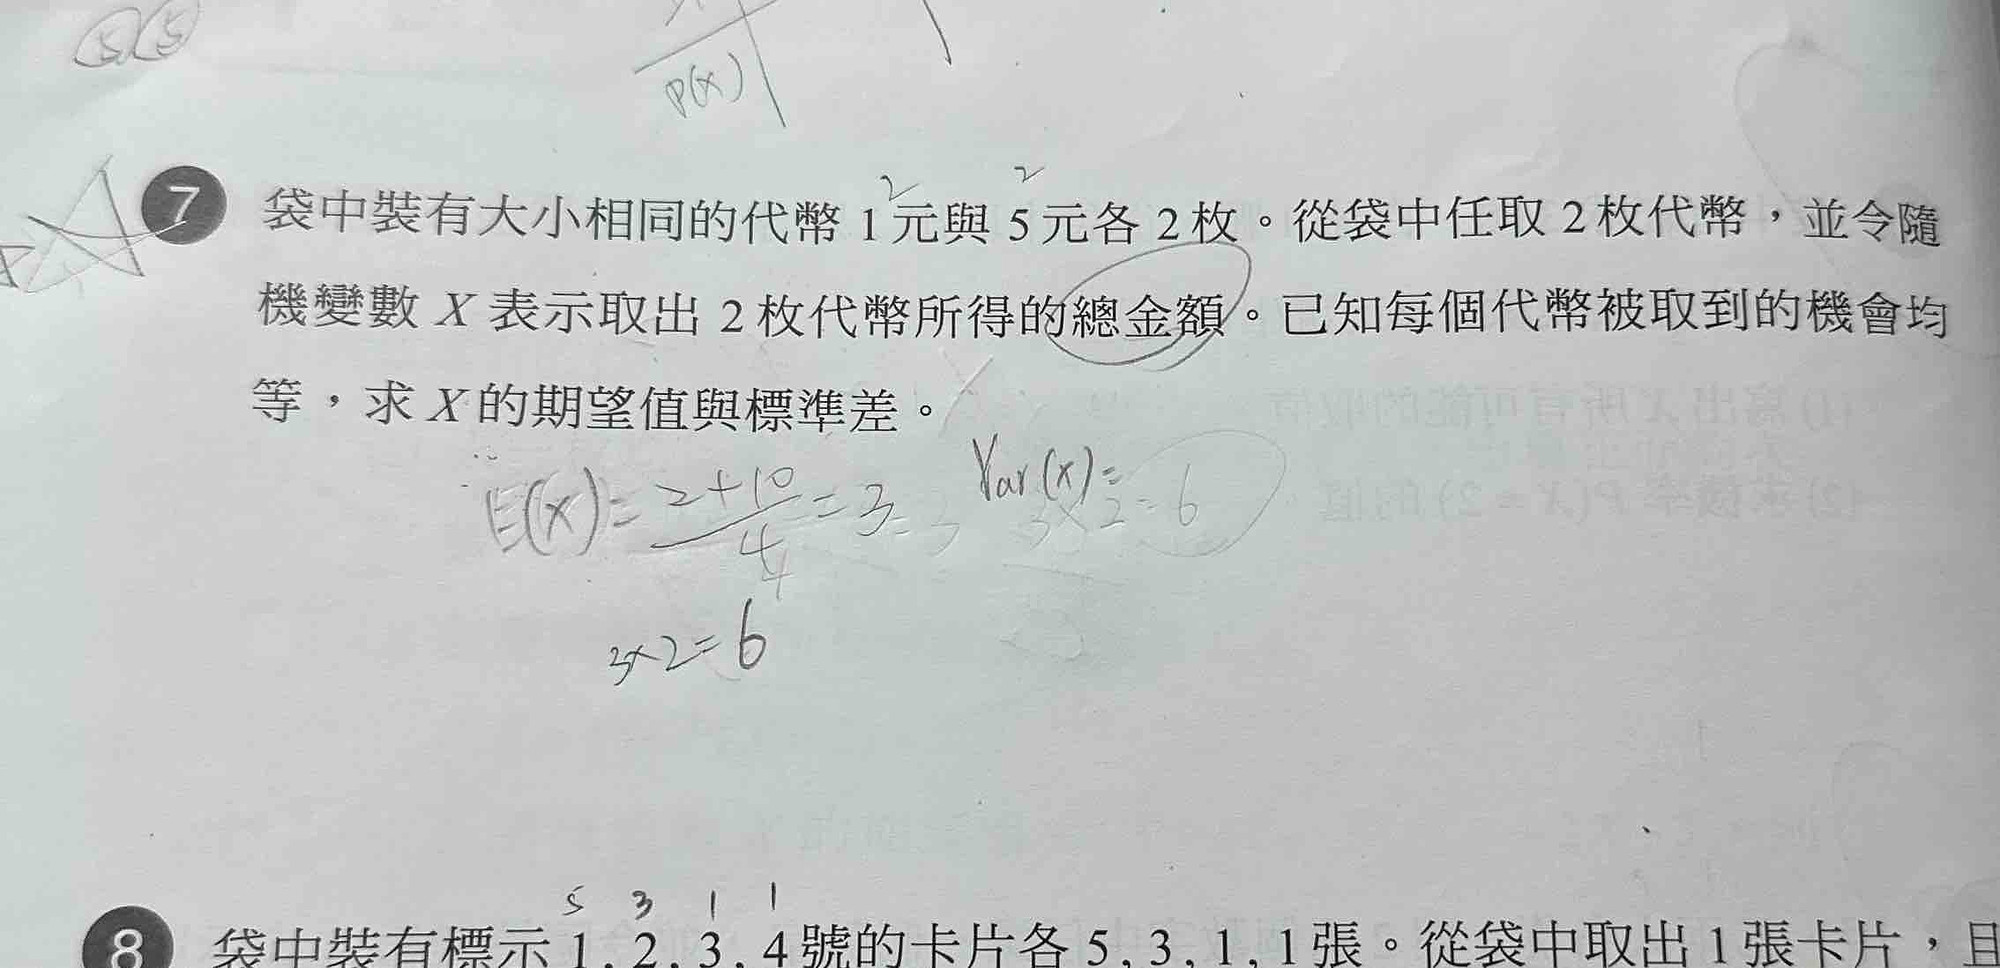 5 5
P(x)
2 2
7 袋中裝有大小相同的代幣 1 元與 5 元各 2 枚。從袋中任取 2 枚代幣，並令隨
機變數 X 表示取出 2 枚代幣所得的總金額。已知每個代幣被取到的機會均
等，求 X 的期望值與標準差。
E(x) = 2+10/4 = 3 = 3 Var(x) = 3×2 = 6
3×2=6
5 3 1 1
8 袋中裝有標示 1, 2, 3, 4 號的卡片各 5, 3, 1, 1 張。從袋中取出 1 張卡片，且